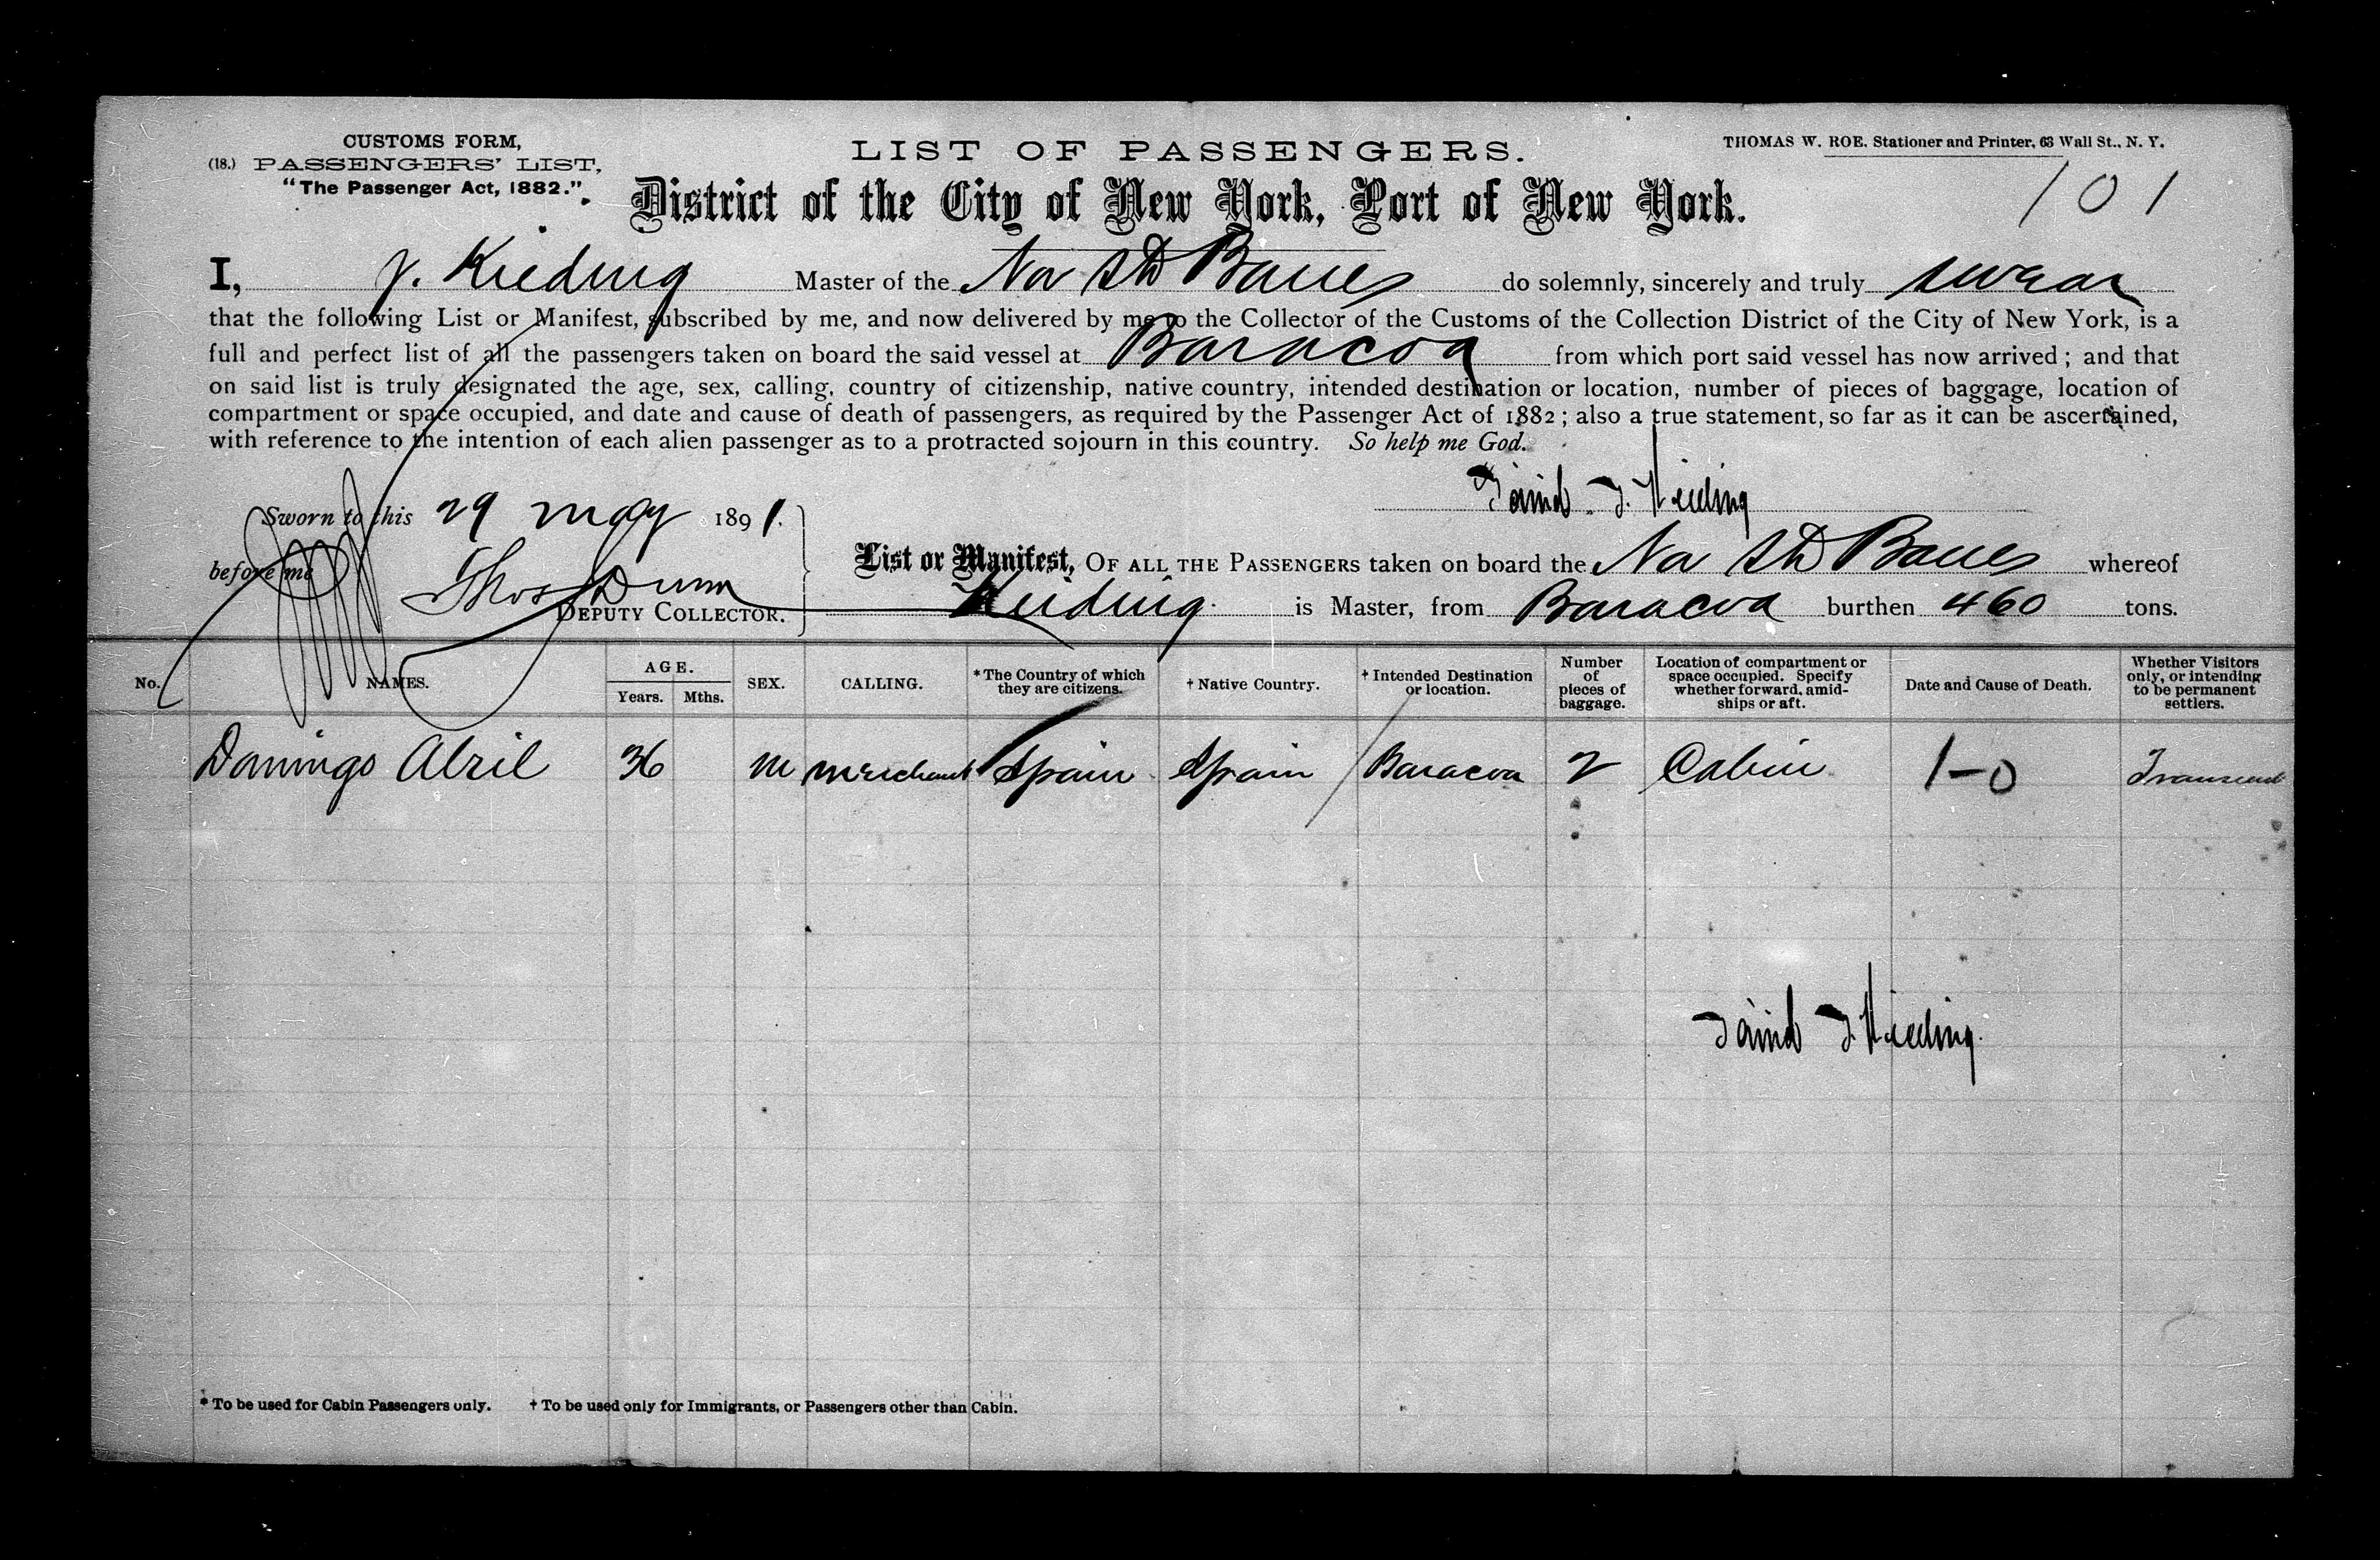 CUSTOMS FORM,
(18.) PASSENGERS' LIST,
"The Passenger Act, 1882."
LIST OF PASSENGERS.
THOMAS W. ROE. Stationer and Printer, 63 Wall St., N. Y.
District of the City of New York, Port of New York.
101
I, J. Kieding Master of the Nor Str Banes do solemnly, sincerely and truly swear
that the following List or Manifest, subscribed by me, and now delivered by me to the Collector of the Customs of the Collection District of the City of New York, is a
full and perfect list of all the passengers taken on board the said vessel at Baracoa from which port said vessel has now arrived; and that
on said list is truly designated the age, sex, calling, country of citizenship, native country, intended destination or location, number of pieces of baggage, location of
compartment or space occupied, and date and cause of death of passengers, as required by the Passenger Act of 1882; also a true statement, so far as it can be ascertained,
with reference to the intention of each alien passenger as to a protracted sojourn in this country. So help me God.
Sworn to this 29 May 1891.
before me Thos Dunn
DEPUTY COLLECTOR.
List or Manifest, OF ALL THE PASSENGERS taken on board the Nor Str Banes whereof
Kieding is Master, from Baracoa burthen 460 tons.
No. NAMES. AGE. Years. Mths. SEX. CALLING. *The Country of which they are citizens. †Native Country. †Intended Destination or location. Number of pieces of baggage. Location of compartment or space occupied. Specify whether forward, amidships or aft. Date and Cause of Death. Whether Visitors only, or intending to be permanent settlers.
Domingo Abril 36 M Merchant Spain Spain Baracoa 2 Cabin 1-0 Transient
* To be used for Cabin Passengers only. † To be used only for Immigrants, or Passengers other than Cabin.